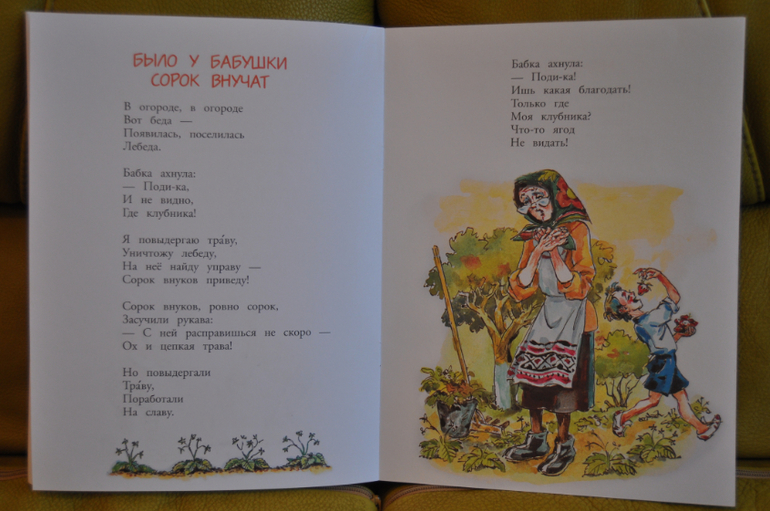 БЫЛО У БАБУШКИ
СОРОК ВНУЧАТ
В огороде, в огороде
Вот беда —
Появилась, поселилась
Лебеда.
Бабка ахнула:
— Поди-ка,
И не видно,
Где клубника!
Я повыдергаю тра́ву,
Уничтожу лебеду,
На неё найду управу —
Сорок внуков приведу!
Сорок внуков, ровно сорок,
Засучили рукава:
— С ней расправишься не скоро —
Ох и цепкая трава!
Но повыдергали
Тра́ву,
Поработали
На славу.
Бабка ахнула:
— Поди-ка!
Ишь какая благодать!
Только где
Моя клубника?
Что-то ягод
Не видать!